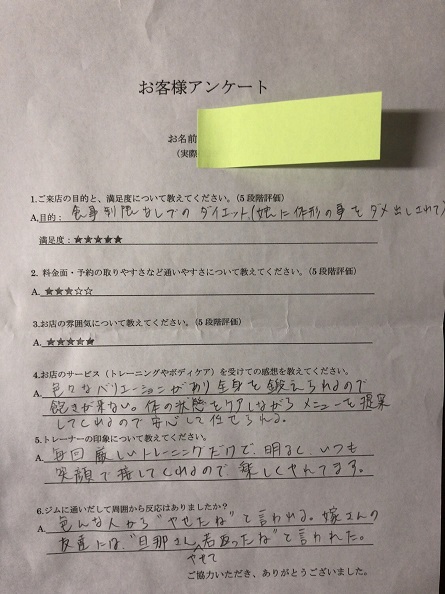 お客様アンケート
お名前
(実際
1.ご来店の目的と、満足度について教えてください。(5段階評価)
A.目的: 食事制限なしでのダイエット。(娘に体形の事をダメ出しされて)
満足度:★★★★★
2. 料金面・予約の取りやすさなど通いやすさについて教えてください。(5段階評価)
A. ★★★☆☆
3.お店の雰囲気について教えてください。(5段階評価)
A. ★★★★★
4.お店のサービス(トレーニングやボディケア)を受けての感想を教えてください。
A. 色々なバリエーションがあり全身を鍛えられるので
飽きが来ない。体の状態をケアしながらメニューを提案
してくれるので安心して任せられる。
5.トレーナーの印象について教えてください。
A. 毎回厳しいトレーニングだけで、明るく、いつも
笑顔で接してくれるので楽しくやれてます。
6.ジムに通いだして周囲から反応はありましたか?
A. 色んな人から"やせたね"と言われる。嫁さんの
友達には、"旦那さんやせて若返ったね"と言われた。
ご協力いただき、ありがとうございました。